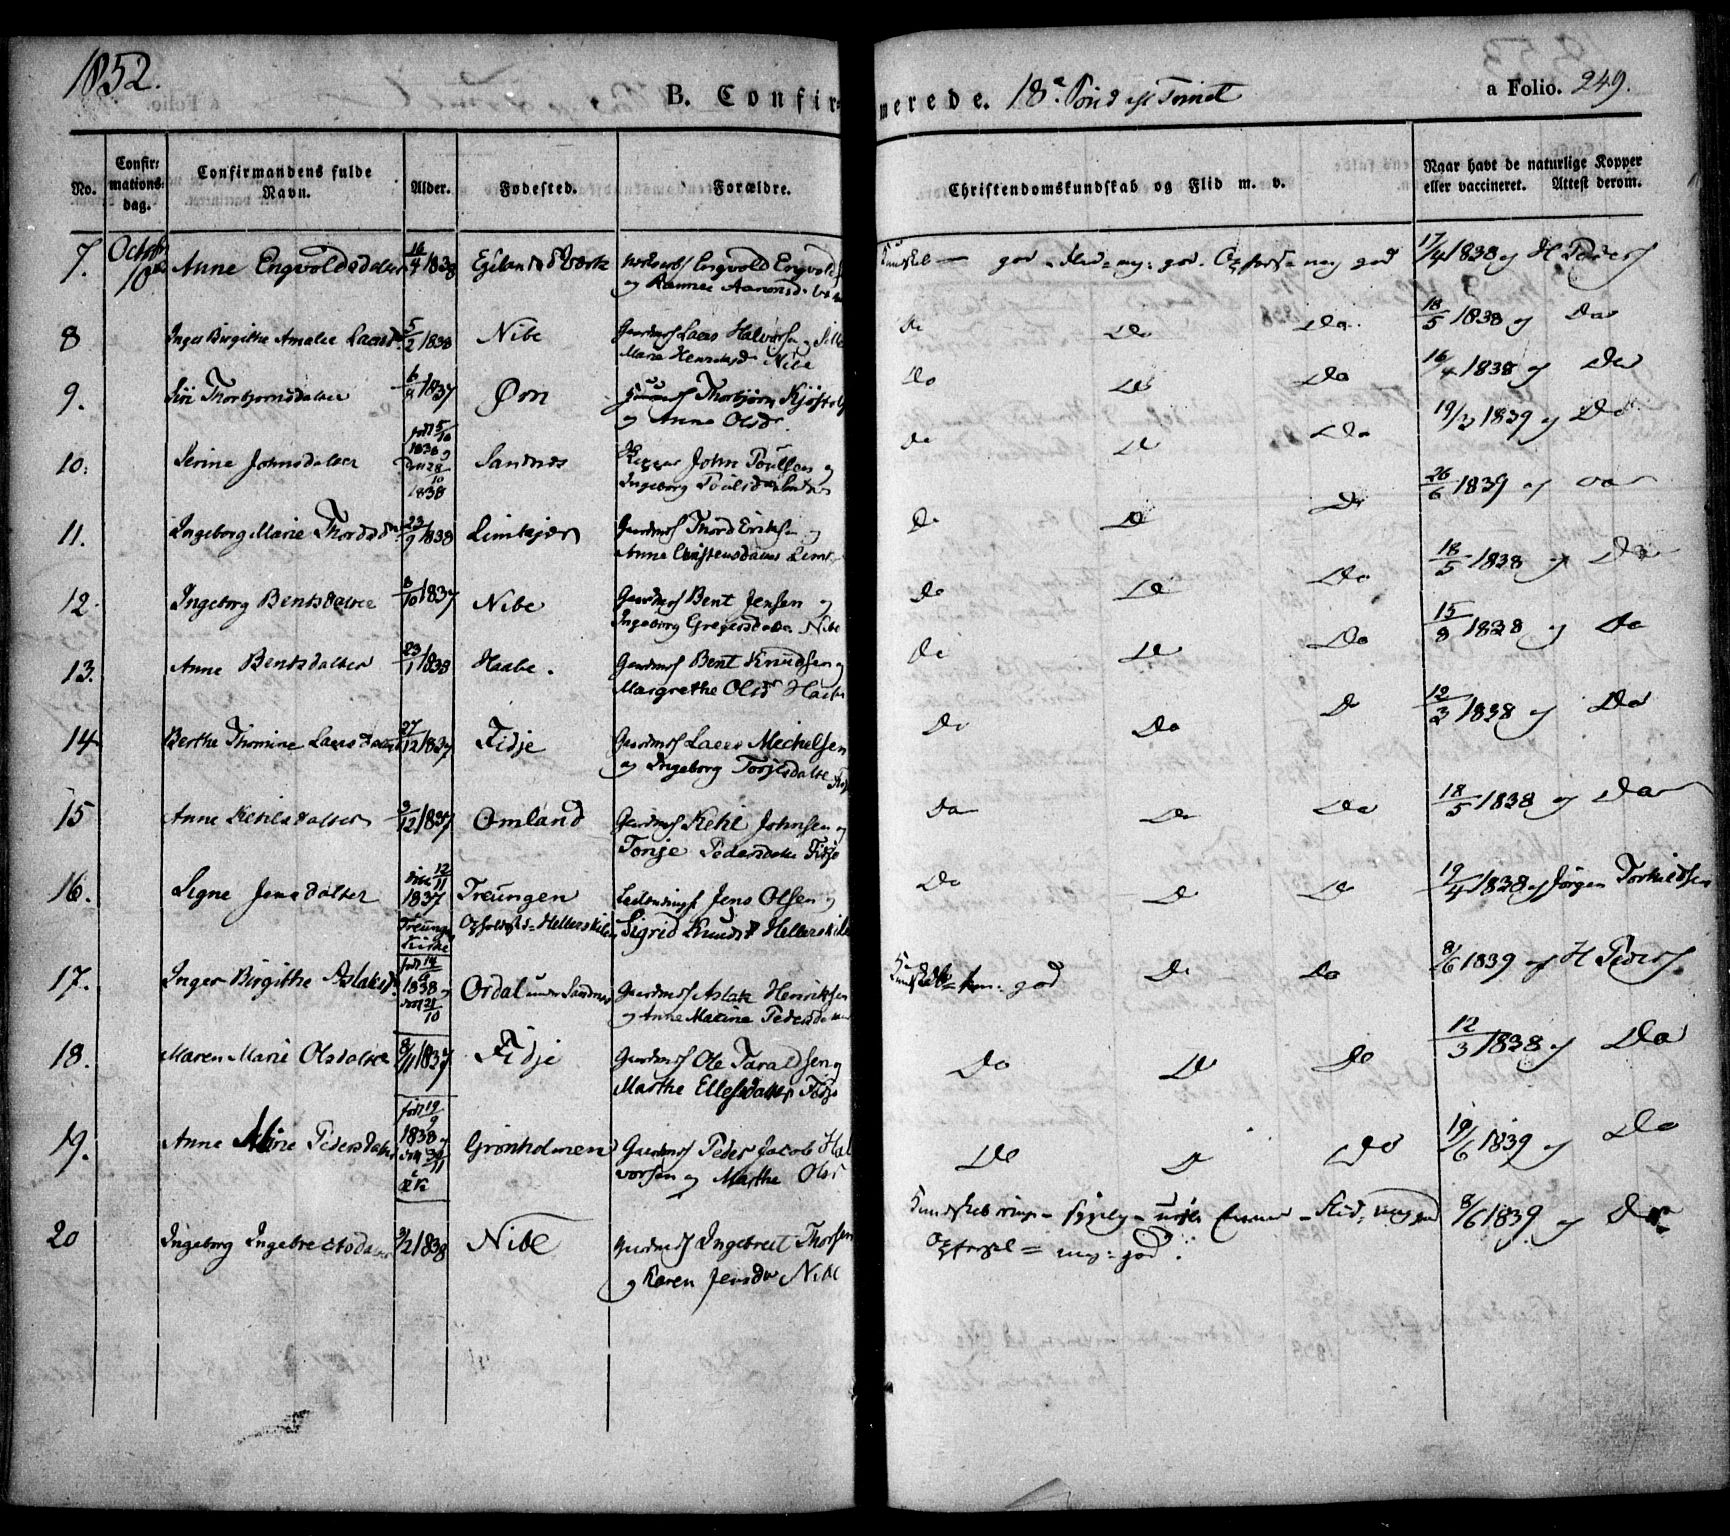 1852.
B. Confirmerede. 18de Sønd eft Trinit a Folio. 249.
No. Confirmations-dag. Confirmandens fulde Navn. Alder. Fødested. Forældre. Christendomskundskab og Flid m. v. Naar havt de naturlige Kopper eller vaccineret. Attest derom.
7. Octob 10de Anne Engvoldsdatter 16/4 1838 Egelands Værk Engvold Engvolds
og Aaronsd. 17/4 1838 og H Peders
god Flid = mg: god. mg god
8 Inger Birgithe Amalie Laersd 5/2 1838 Nibe Gaardmds Laers Halvorsen og
Marie Henriksd Nibe Do Do Do 18/5 1838 og Do
9. Siri Thorbjørnsdatter 1837 Øvn Thorbjørn Kjøstels
og Anne Olsd. Do Do Do 16/4 1838 og Do
10. Serine Johnsdatter født 5/10 1838 og døbt 28/10 1838 Sandnes John Poulsen og
Ingeborg Poulsd Do Do Do 19/3 1839 og Do
11. Ingeborg Marie Thordsd 23/9 1838 Limkjær Gaardmds Thord Eriksen og
Anne Christensdatter Limk Do Do Do 26/6 1839 og Do
12. Ingeborg Bentsdatter 8/10 1837 Nibe Gaardmds Bent Jensen og
Ingeborg Gregersdatter Nibe Do Do Do 18/5 1838 og Do
13. Anne Bentsdatter 23/1 1838 Haabe. Gaardmds Bent Knudsen og
Margrethe Olsd Haabe Do Do Do 15/8 1838 og Do
14 Berthe Thomine Laersdatter 27/12 1837 Fidje Gaardmds Laers Michelsen
og Ingeborg Torjlsdatter Fidj Do Do Do 12/3 1838 og Do
15 Anne Kehlsdatter 3/12 1837 Omland Gaardmds Kehl Johnsen og
Tonje Pedersdatter Fidje Do Do Do 18/5 1838 og Do
16. Signe Jensdatter døbt 12/11 1837 Treungen Kirke Treungen
Opholdst = Hellerskilen Jens Olsen og
Sigrid Knudsd Hellerskile Do Do Do 19/4 1838 og Jørgen Torkildsen
17. Inger Birgithe Aslaksd. født 14/9 1838 og døbt 21/10 Ordal under Sandnes Gaardmds Aslak Henriksen
og Anne Maline Pedersdatter Kundskab = god Do Do 8/6 1839 og H Peders.
18. Maren Marie Olsdatter 8/11 1837 Fidje Gaardmds Ole Taraldsen og
Marthe Ellefsdatter Fidje Do Do Do 12/3 1838 og Do
19. Anne Marie Pedersdatter født 19/9 1838 og døbt 30/11 Grønholmen Gaardmds Peder Jacob Hal
vorsen og Marthe Olsd Do Do Do 19/6 1839 og Do
20 Ingeborg Ingebrechtsdatter 3/2 1838 Nibe Gaardmds Ingebret Thorsen
og Karen Jensdr Nibe Kundskab ringe Flid, mg god
Opførsel = mg: god. 8/6 1839 og Do